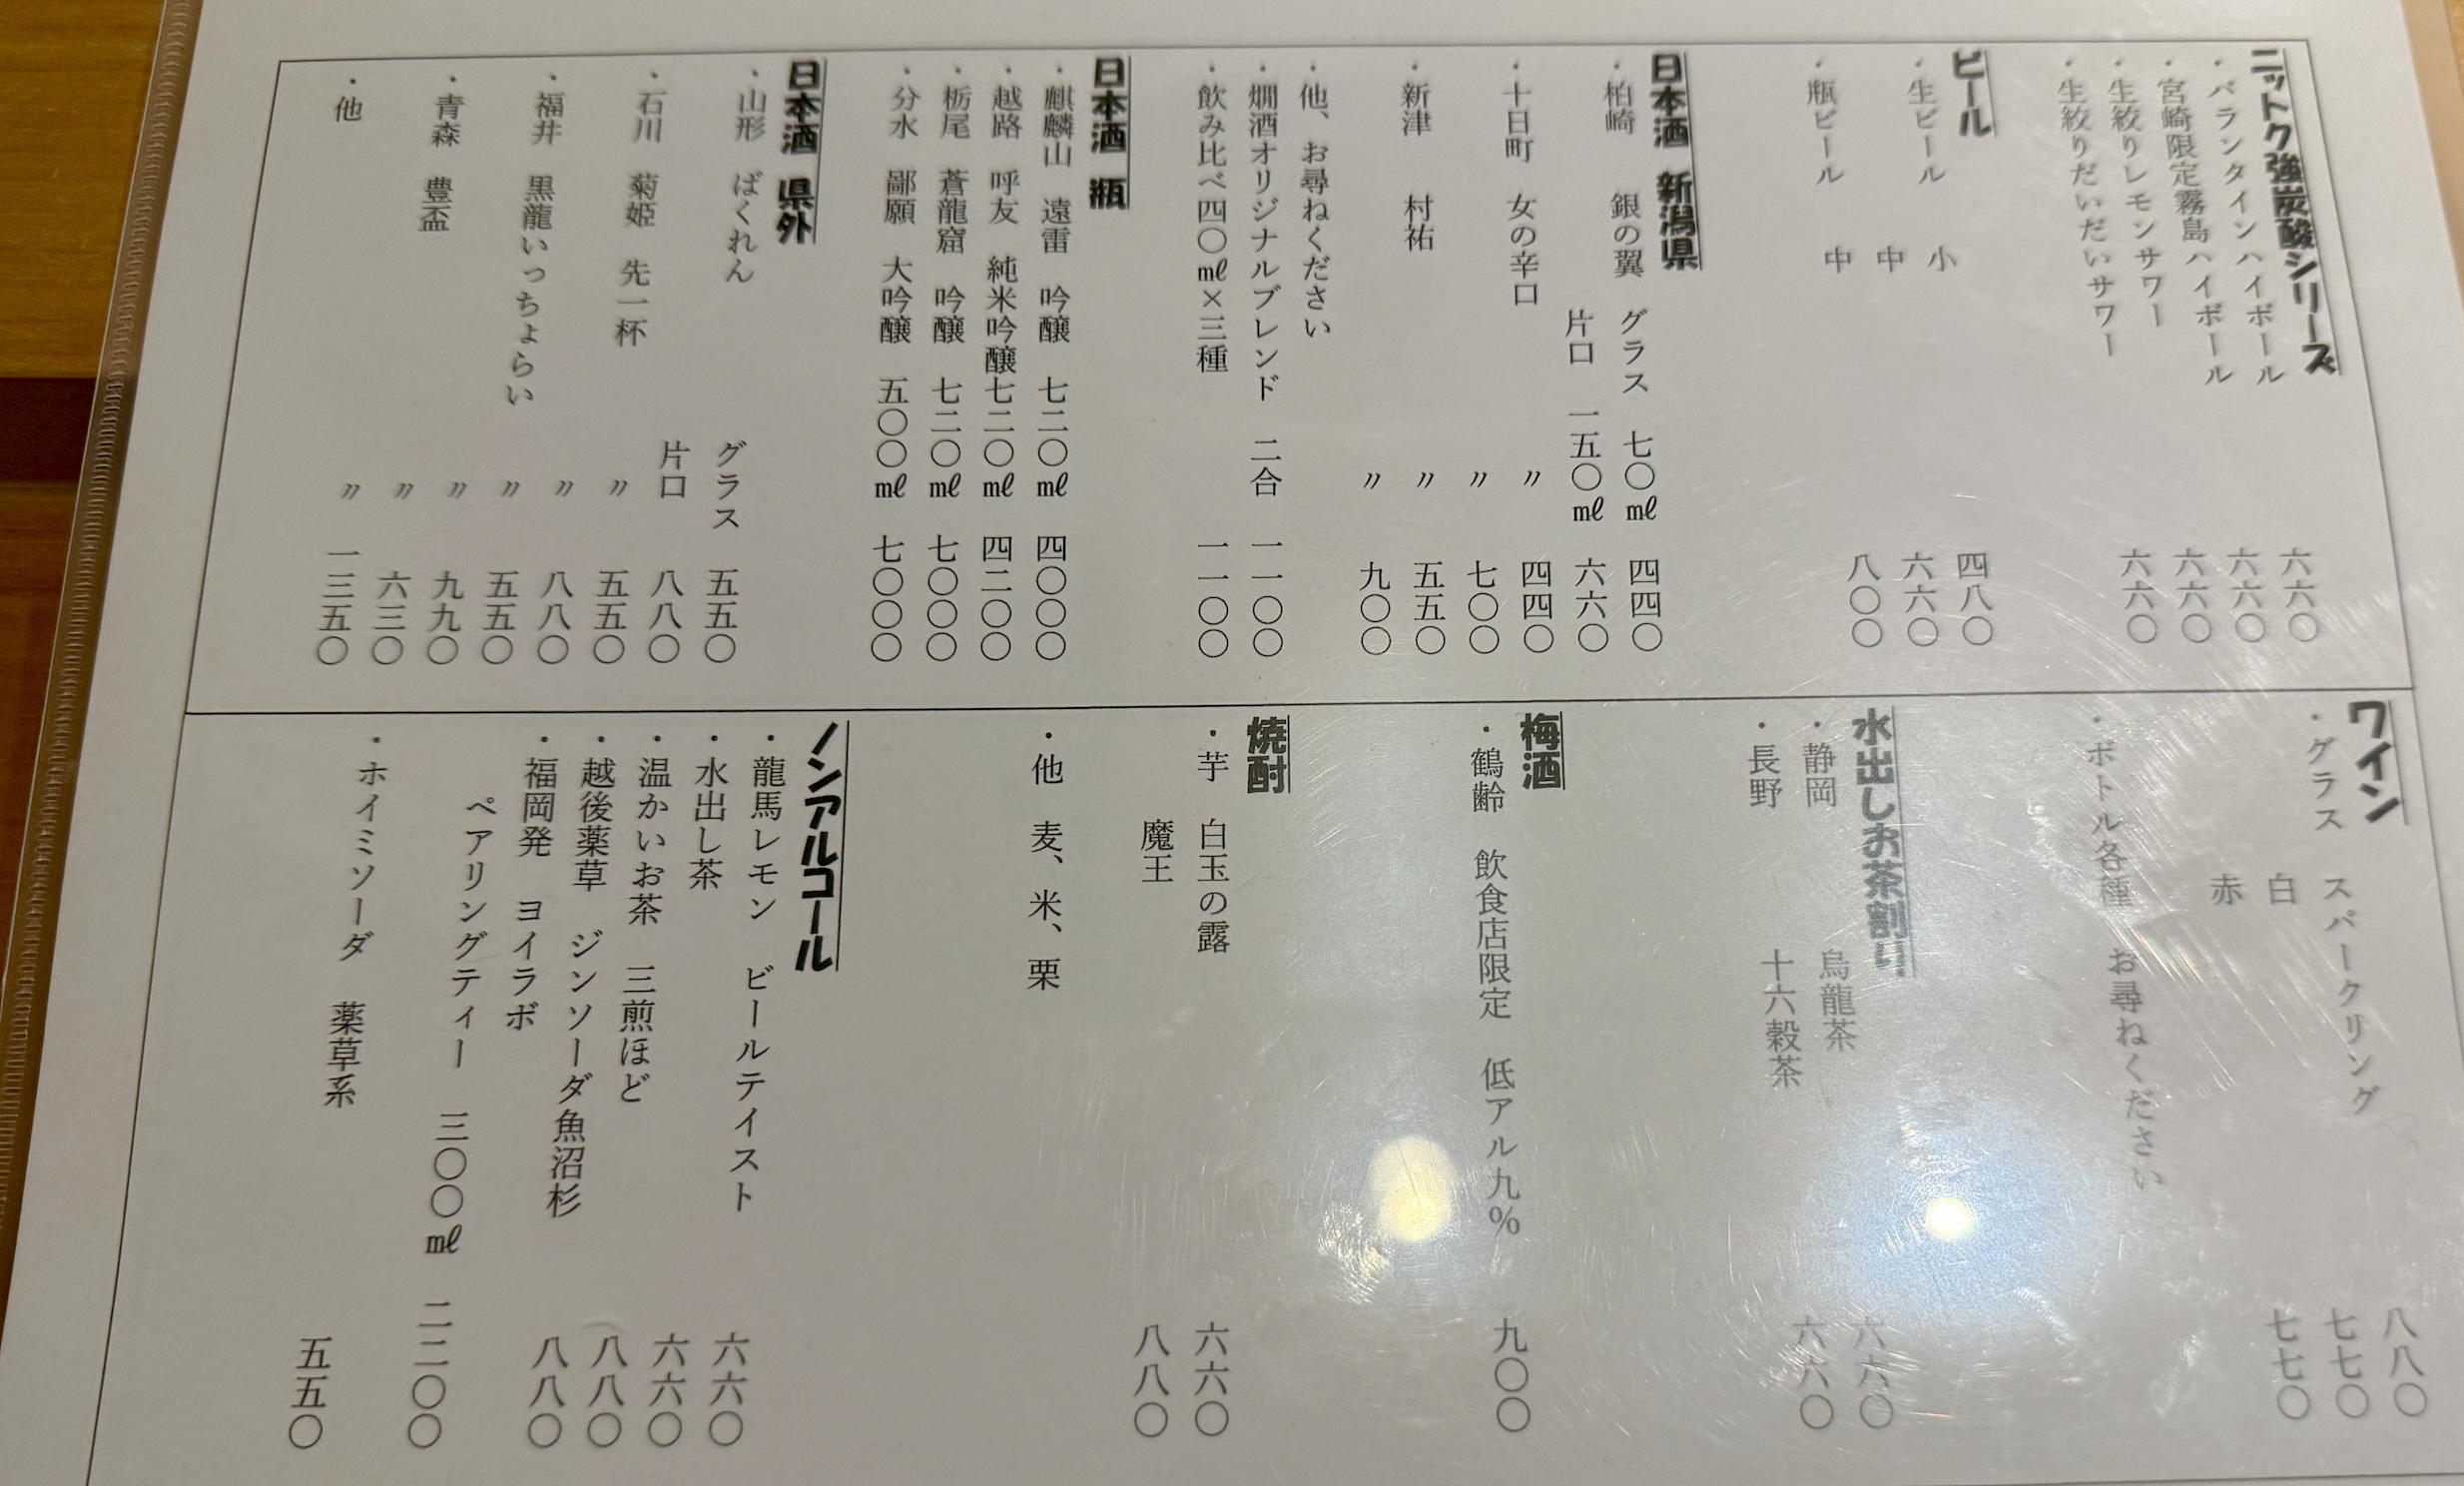 ニットク強炭酸シリーズ
・バランタインハイボール 六六〇
・宮崎限定霧島ハイボール 六六〇
・生絞りレモンサワー 六六〇
・生絞りだいだいサワー 六六〇
ビール
・生ビール 小 四八〇
中 六六〇
・瓶ビール 中 八〇〇
日本酒 新潟県
・柏崎 銀の翼 グラス 七〇㎖ 四四〇
片口 一五〇㎖ 六六〇
・十日町 女の辛口 〃 四四〇
〃 七〇〇
・新津 村祐 〃 五五〇
〃 九〇〇
・他、お尋ねください
・燗酒オリジナルブレンド 二合 一一〇〇
・飲み比べ四〇㎖×三種 一一〇〇
日本酒 瓶
・麒麟山 遠雷 吟醸 七二〇㎖ 四〇〇〇
・越路 呼友 純米吟醸 七二〇㎖ 四二〇〇
・栃尾 蒼龍窟 吟醸 七二〇㎖ 七〇〇〇
・分水 鄙願 大吟醸 五〇〇㎖ 七〇〇〇
日本酒 県外
・山形 ばくれん グラス 五五〇
片口 八八〇
・石川 菊姫 先一杯 〃 五五〇
〃 八八〇
・福井 黒龍いっちょらい 〃 五五〇
〃 九九〇
・青森 豊盃 〃 六三〇
〃 一三五〇
・他
ワイン
・グラス スパークリング 八八〇
白 七七〇
赤 七七〇
・ボトル各種 お尋ねください
水出しお茶割り
・静岡 烏龍茶 六六〇
・長野 十六穀茶 六六〇
梅酒
・鶴齢 飲食店限定 低アル九％ 九〇〇
焼酎
・芋 白玉の露 六六〇
魔王 八八〇
・他 麦、米、栗
ノンアルコール
・龍馬レモン ビールテイスト 六六〇
・水出し茶 六六〇
・温かいお茶 三煎ほど 八八〇
・越後薬草 ジンソーダ魚沼杉 八八〇
・福岡発 ヨイラボ
ペアリングティー 三〇〇㎖ 二二〇〇
・ホイミソーダ 薬草系 五五〇